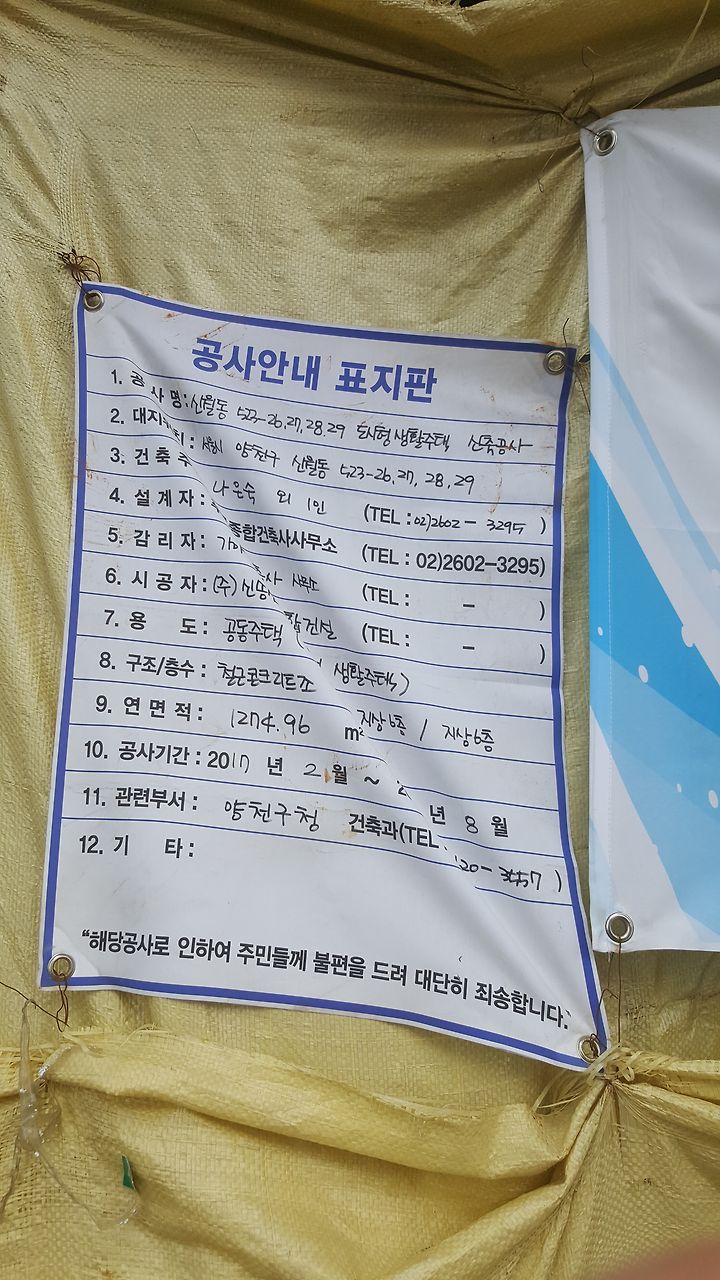 공사안내 표지판
1. 공 사 명: 신월동 523-26,27,28,29 도시형생활주택 신축공사
2. 대지위치: 서울시 양천구 신월동 523-26,27,28,29
3. 건 축 주 나은숙 외 1인 (TEL : 02)2602 - 3295 )
4. 설 계 자 : 종합건축사사무소 (TEL : 02)2602-3295)
5. 감 리 자 : 사무소 (TEL : - )
6. 시 공 자 : (주) 종합건설 (TEL : - )
7. 용 도 : 공동주택 ( 생활주택)
8. 구조/층수 : 철근콘크리트조 지상6층 / 지상6층
9. 연 면 적 : 1274.96 m²
10. 공사기간 : 2017 년 2 월 ~ 2 년 8 월
11. 관련부서 : 양천구청 건축과(TEL 20- )
12. 기 타 :
"해당공사로 인하여 주민들께 불편을 드려 대단히 죄송합니다."